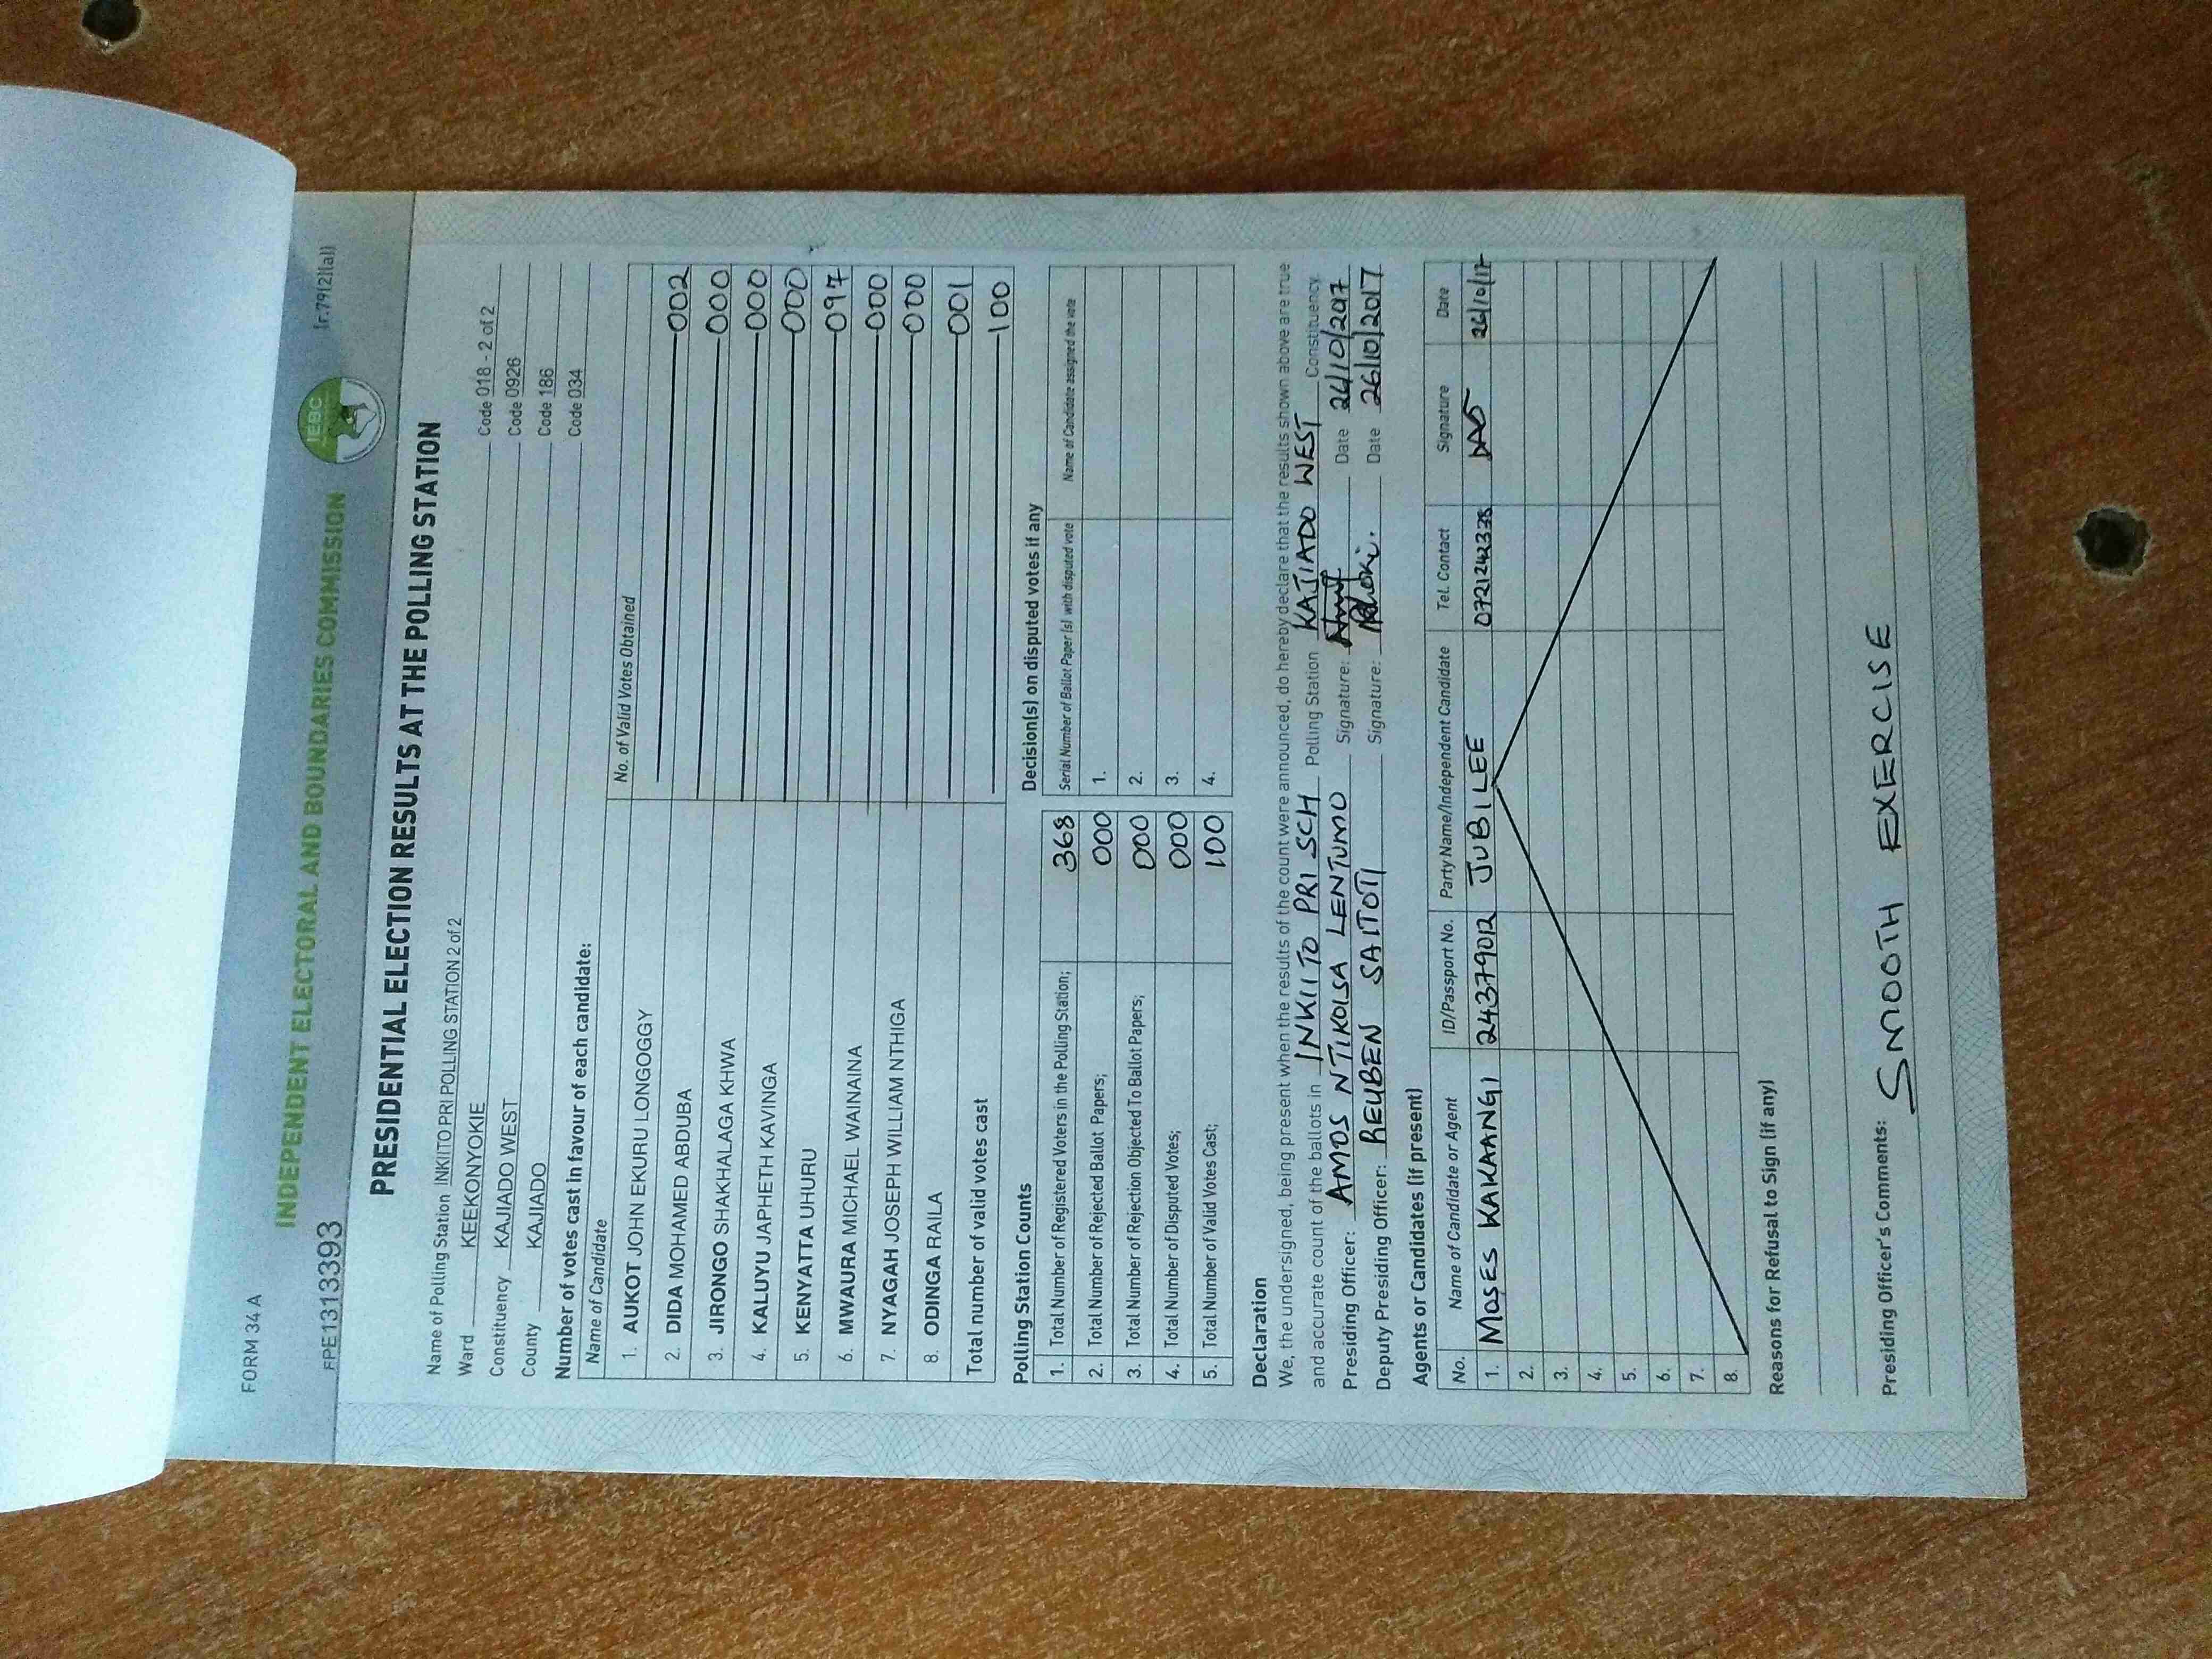 FORM 34 A
INDEPENDENT ELECTORAL AND BOUNDARIES COMMISSION
IEBC
(r.79(2)(a))
FPE1313393
PRESIDENTIAL ELECTION RESULTS AT THE POLLING STATION
Name of Polling Station INKIITO PRI POLLING STATION 2 of 2 Code 018 - 2 of 2
Ward KEEKONYOKIE Code 0926
Constituency KAJIADO WEST Code 186
County KAJIADO Code 034
Number of votes cast in favour of each candidate:
Name of Candidate No. of Valid Votes Obtained
1. AUKOT JOHN EKURU LONGOGGY 002
2. DIDA MOHAMED ABDUBA 000
3. JIRONGO SHAKHALAGA KHWA 000
4. KALUYU JAPHETH KAVINGA 000
5. KENYATTA UHURU 097
6. MWAURA MICHAEL WAINAINA 000
7. NYAGAH JOSEPH WILLIAM NTHIGA 000
8. ODINGA RAILA 001
Total number of valid votes cast 100
Polling Station Counts
1. Total Number of Registered Voters in the Polling Station; 368
2. Total Number of Rejected Ballot Papers; 000
3. Total Number of Rejection Objected To Ballot Papers; 000
4. Total Number of Disputed Votes; 000
5. Total Number of Valid Votes Cast; 100
Decision(s) on disputed votes if any
Serial Number of Ballot Paper (s) with disputed vote Name of Candidate assigned the vote
1.
2.
3.
4.
Declaration
We, the undersigned, being present when the results of the count were announced, do hereby declare that the results shown above are true
and accurate count of the ballots in INKIITO PRI SCH Polling Station KAJIADO WEST Constituency.
Presiding Officer: AMOS NTIKOISA LENTUMO Signature: Date 26/10/2017
Deputy Presiding Officer: REUBEN SAITOTI Signature: Date 26/10/2017
Agents or Candidates (if present)
No. Name of Candidate or Agent ID/Passport No. Party Name/Independent Candidate Tel. Contact Signature Date
1. MOSES KAKAANGI 24379012 JUBILEE 0721242338 26/10/17
2.
3.
4.
5.
6.
7.
8.
Reasons for Refusal to Sign (if any)
Presiding Officer's Comments: SMOOTH EXERCISE